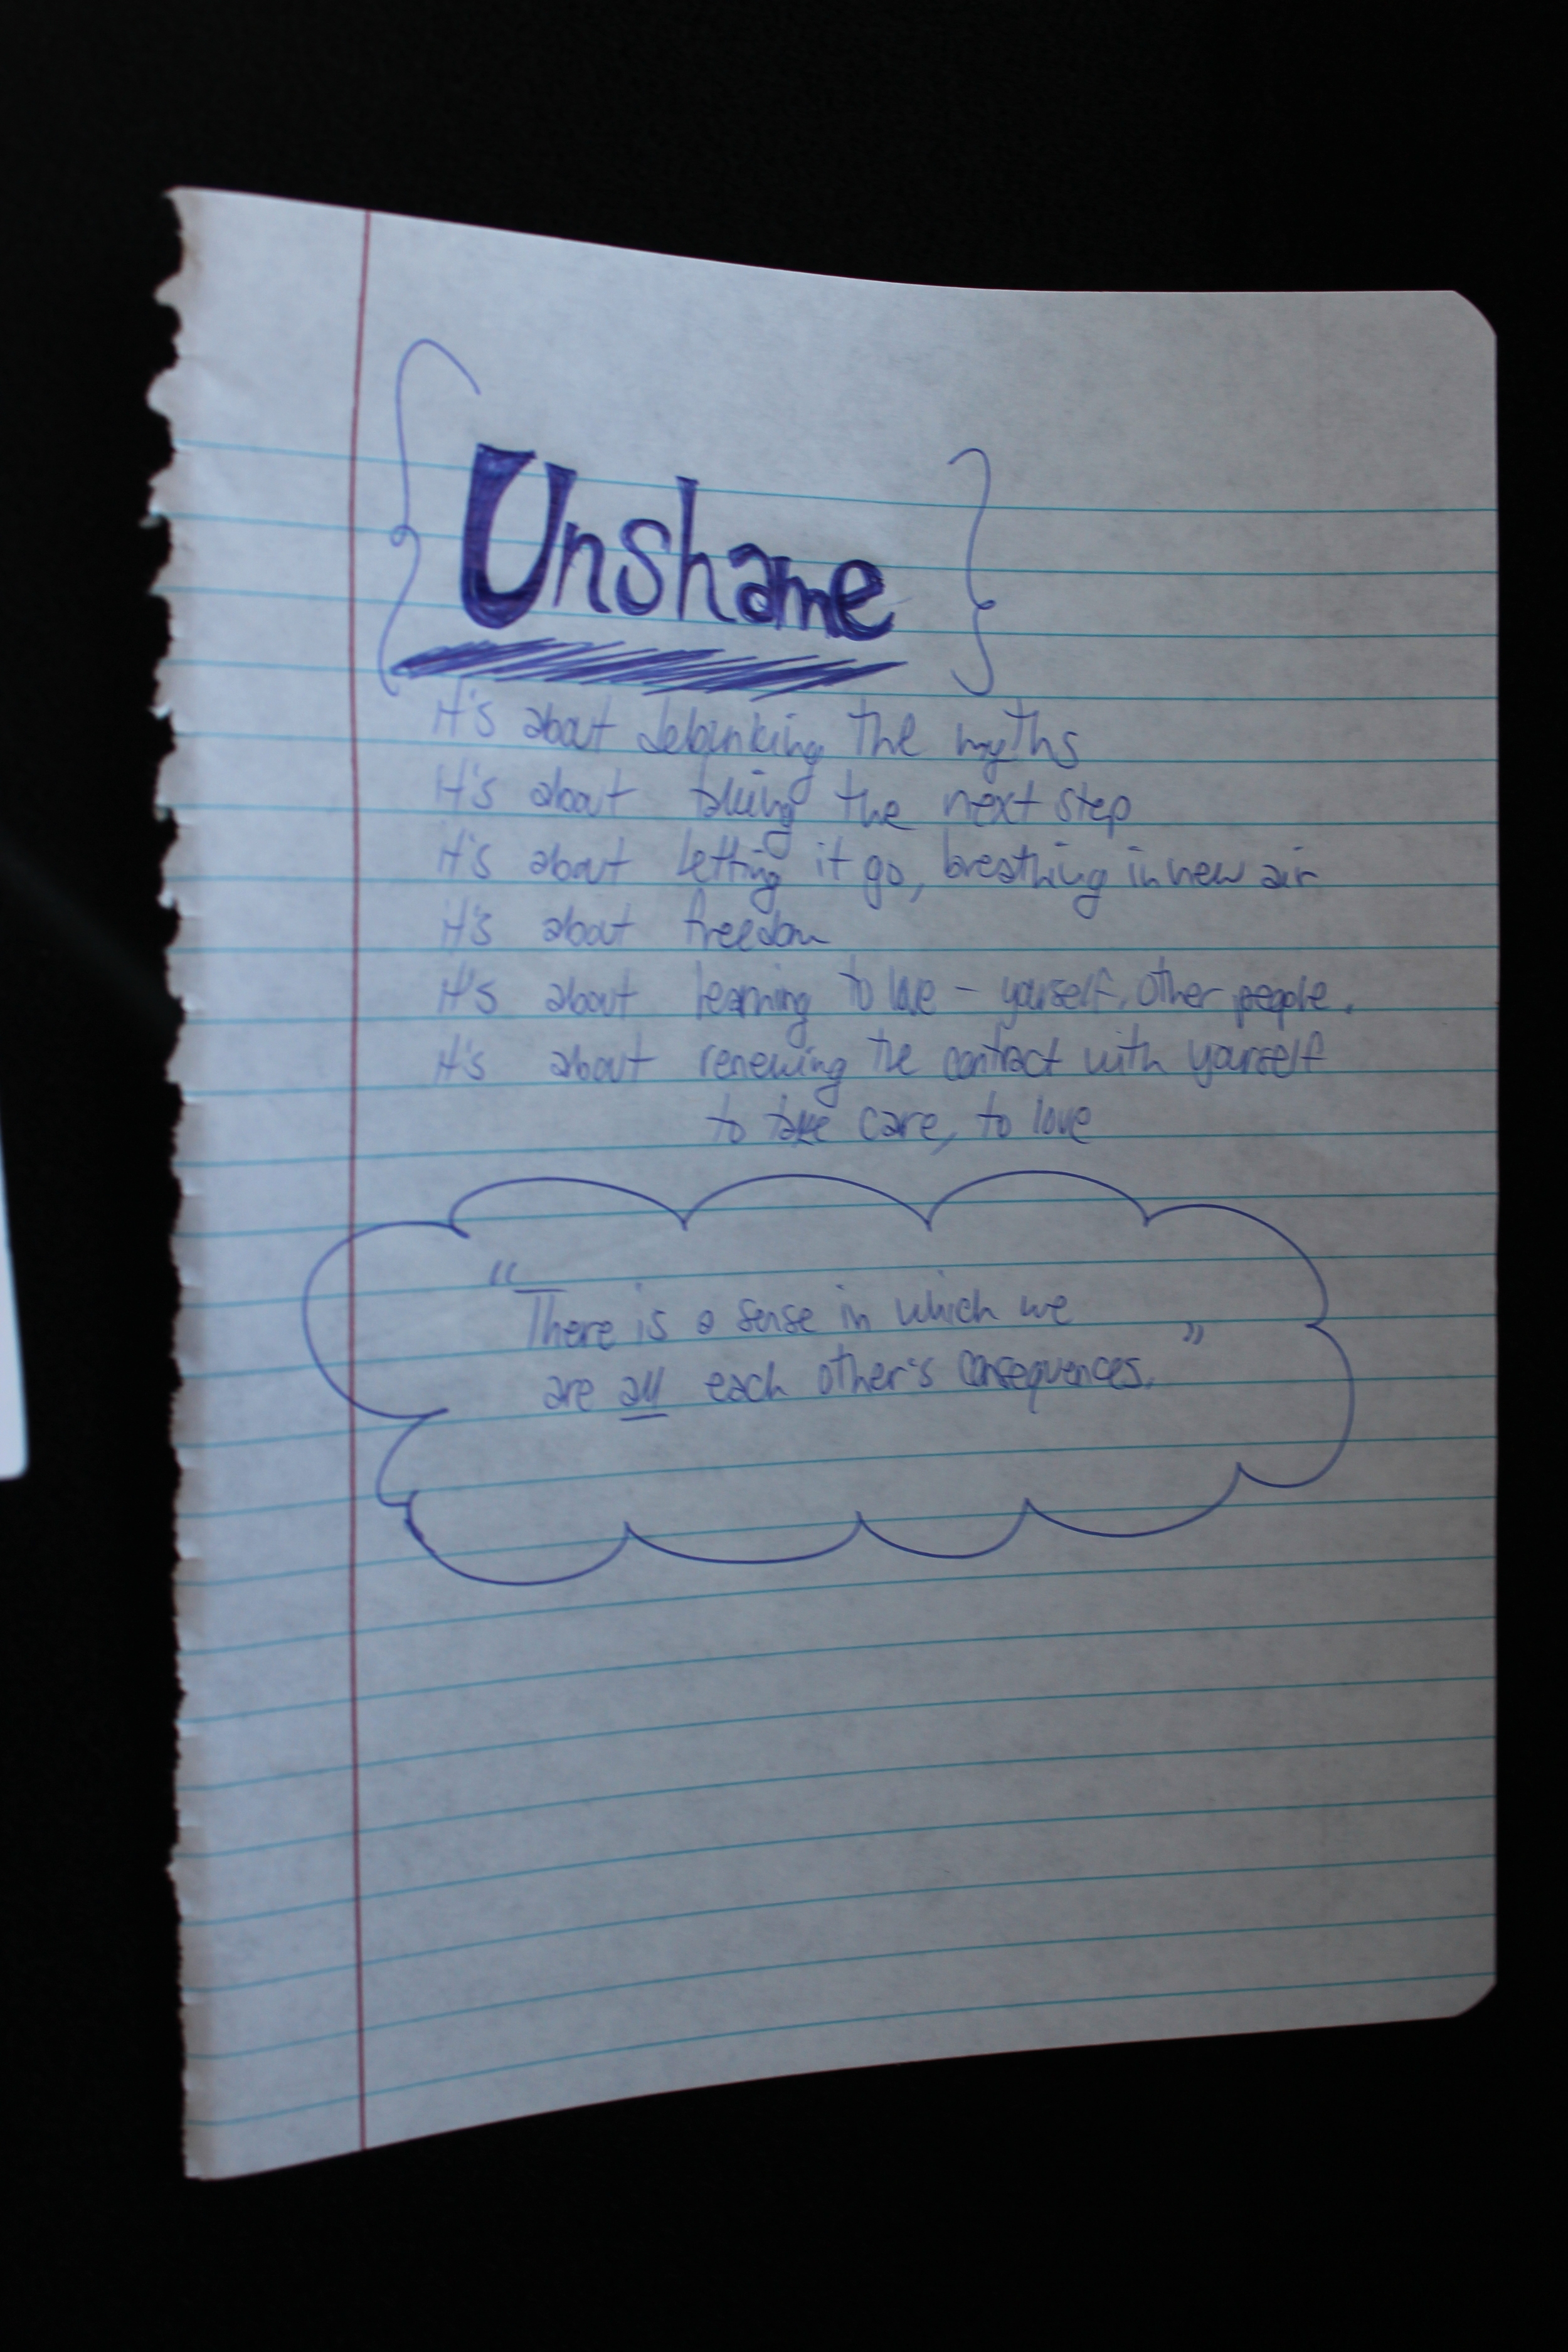 { Unshame }
It's about debunking the myths
It's about taking the next step
It's about letting it go, breathing in new air
It's about freedom
It's about learning to love - yourself, other people.
It's about renewing the contract with yourself
to take care, to love
"There is a sense in which we
are all each other's consequences."